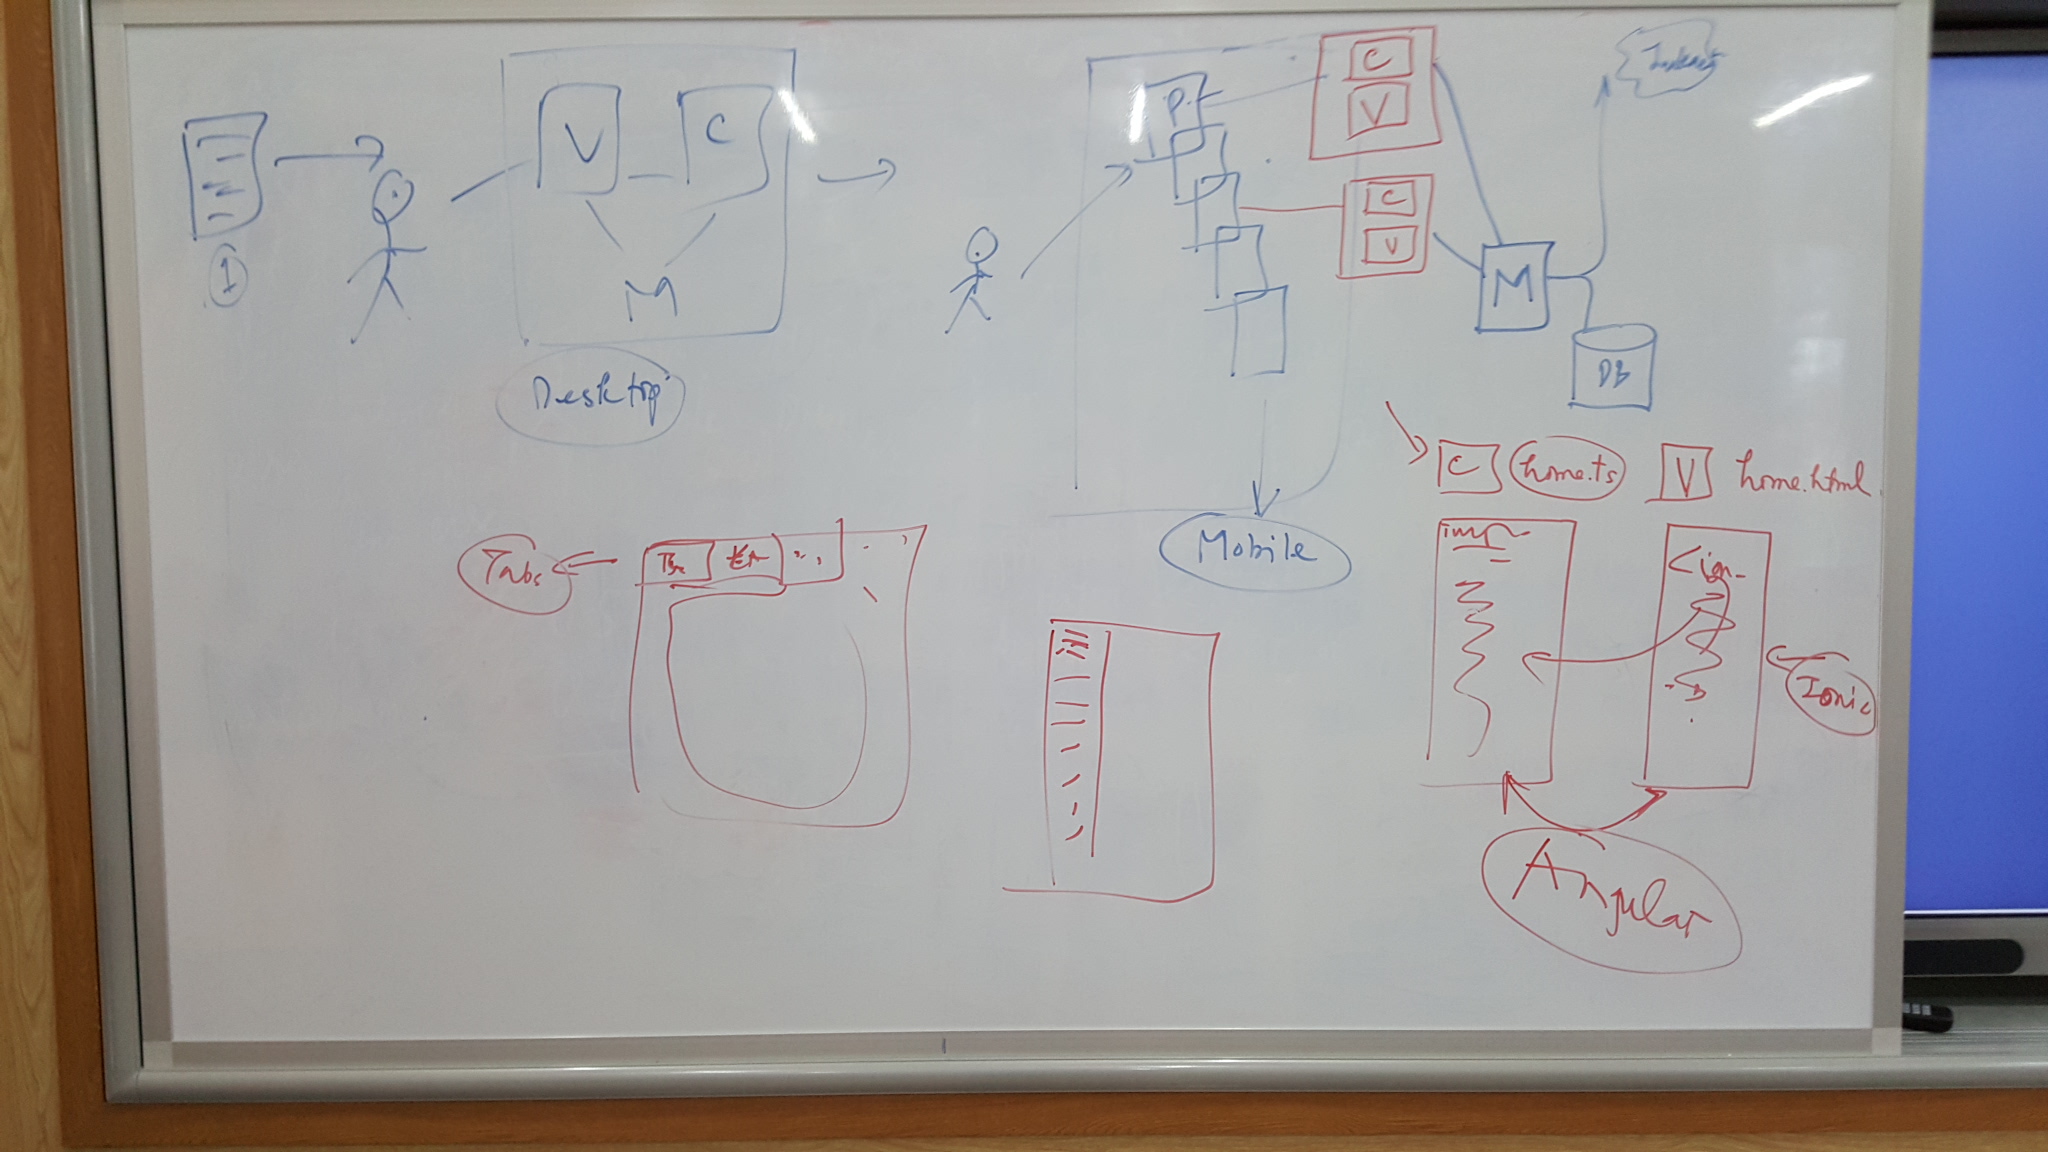 1
V
C
M
Desktop
P.
C
V
C
V
M
DB
Mobile
C
home.ts
V
home.html
Tabs
imp
<ion-
Ionic
Angular